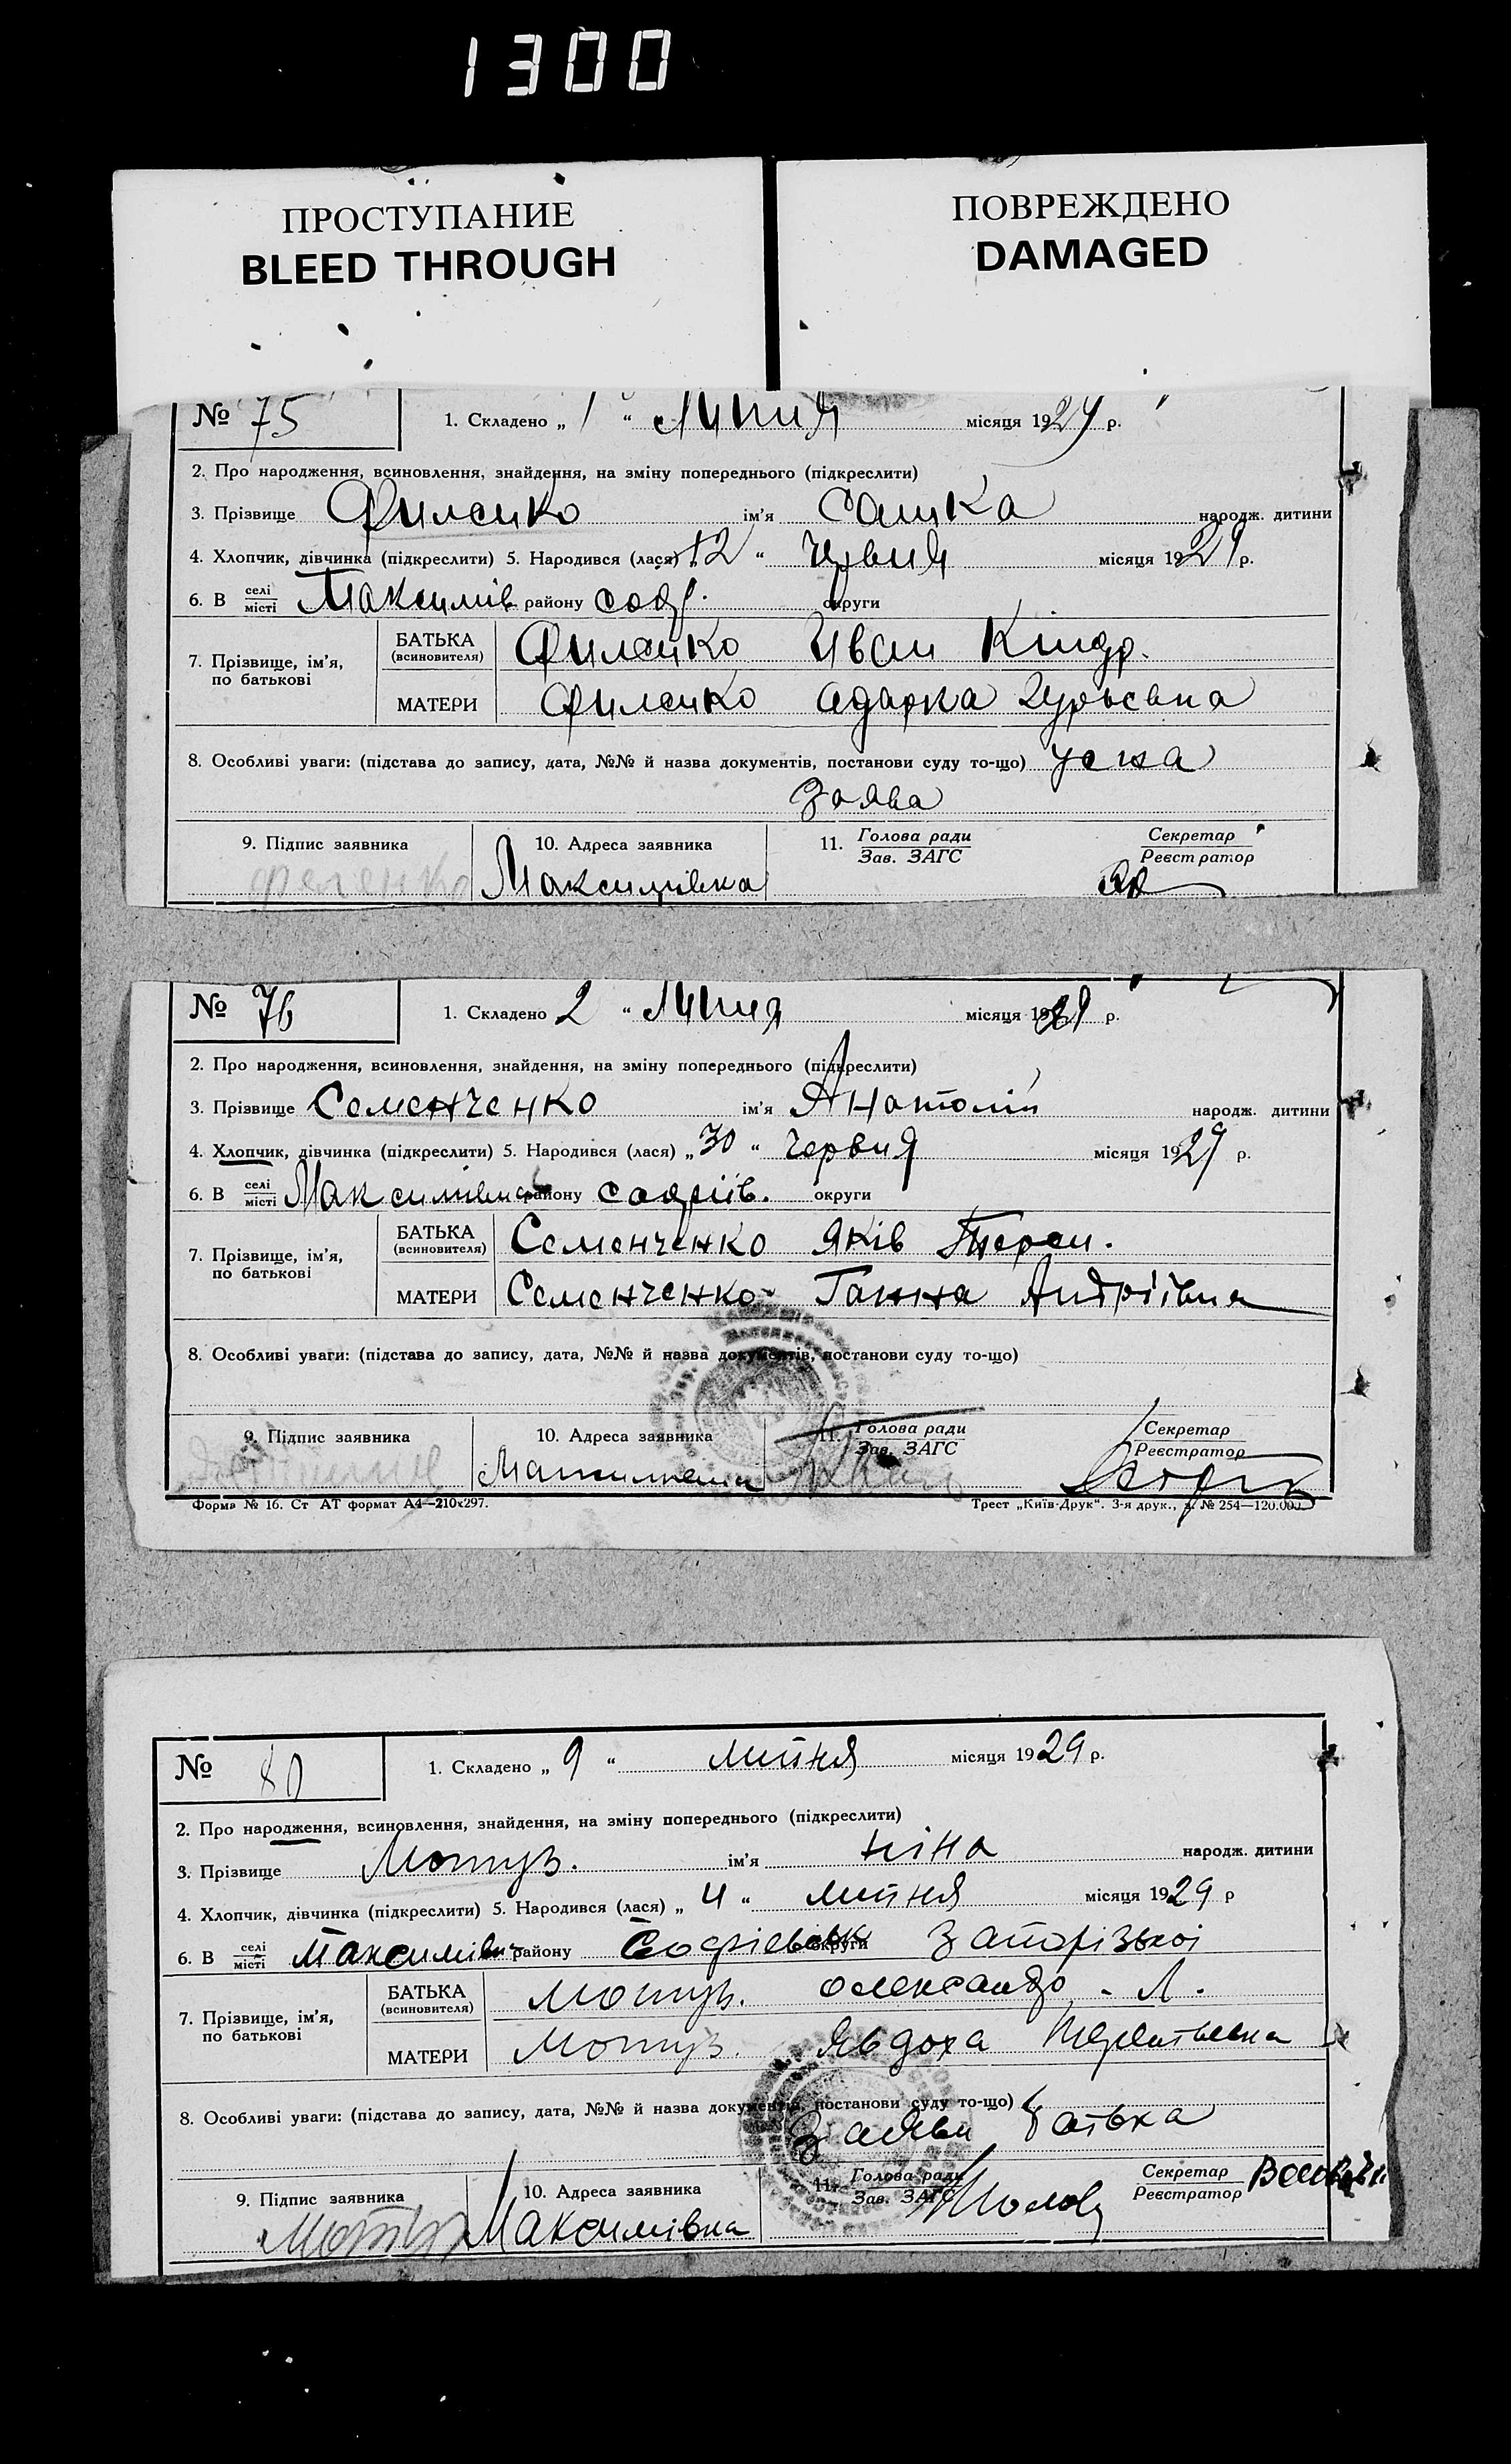 1300
ПРОСТУПАНИЕ
BLEED THROUGH
ПОВРЕЖДЕНО
DAMAGED
№ 75 1. Складено „ 1 “ Липня місяця 1929 р.
2. Про народження, всиновлення, знайдення, на зміну попереднього (підкреслити)
3. Прізвище Филенко ім’я Сашка народж. дитини
4. Хлопчик, дівчинка (підкреслити) 5. Народився (лася) 12 “ Червня місяця 1929 р.
6. В селі місті Максимів району соф. округи
7. Прізвище, ім’я, по батькові
БАТЬКА (всиновителя) Филенко Иван Кіндр.
МАТЕРИ Филенко Одарка Гурьевна
8. Особливі уваги: (підстава до запису, дата, №№ й назва документів, постанови суду то-що) усна
Заява
9. Підпис заявника 10. Адреса заявника 11. Голова ради Зав. ЗАГС Секретар Реєстратор
Филенко Максимівка
№ 76 1. Складено 2 “ Липня місяця 1929 р.
2. Про народження, всиновлення, знайдення, на зміну попереднього (підкреслити)
3. Прізвище Семенченко ім’я Анатолій народж. дитини
4. Хлопчик, дівчинка (підкреслити) 5. Народився (лася) „ 30 “ Червня місяця 1929 р.
6. В селі місті району софіїв. округи
7. Прізвище, ім’я, по батькові
БАТЬКА (всиновителя) Семенченко Яків Терен.
МАТЕРИ Семенченко Ганна Андріївна
8. Особливі уваги: (підстава до запису, дата, №№ й назва документів, постанови суду то-що)
9. Підпис заявника 10. Адреса заявника 11. Голова ради Зав. ЗАГС Секретар Реєстратор
Форма № 16. Ст АТ формат А4—210x297. Трест „Київ-Друк“. 3-я друк., з. № 254—120.000
№ 80 1. Складено „ 9 “ липня місяця 1929 р.
2. Про народження, всиновлення, знайдення, на зміну попереднього (підкреслити)
3. Прізвище Мотуз. ім’я Ніна народж. дитини
4. Хлопчик, дівчинка (підкреслити) 5. Народився (лася) „ 4 “ липня місяця 1929 р
6. В селі місті Максимівк району Софіевськ округи Запорізької
7. Прізвище, ім’я, по батькові
БАТЬКА (всиновителя) Мотуз. Олександр. Л.
МАТЕРИ Мотуз. Явдоха Терентьевна
8. Особливі уваги: (підстава до запису, дата, №№ й назва документів, постанови суду то-що)
Заява батька
9. Підпис заявника 10. Адреса заявника 11. Голова ради Зав. ЗАГС Секретар Реєстратор
Мотуз Максимівка